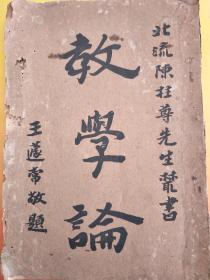 北流陳柱尊先生叢書
教學論
王蘧常敬題